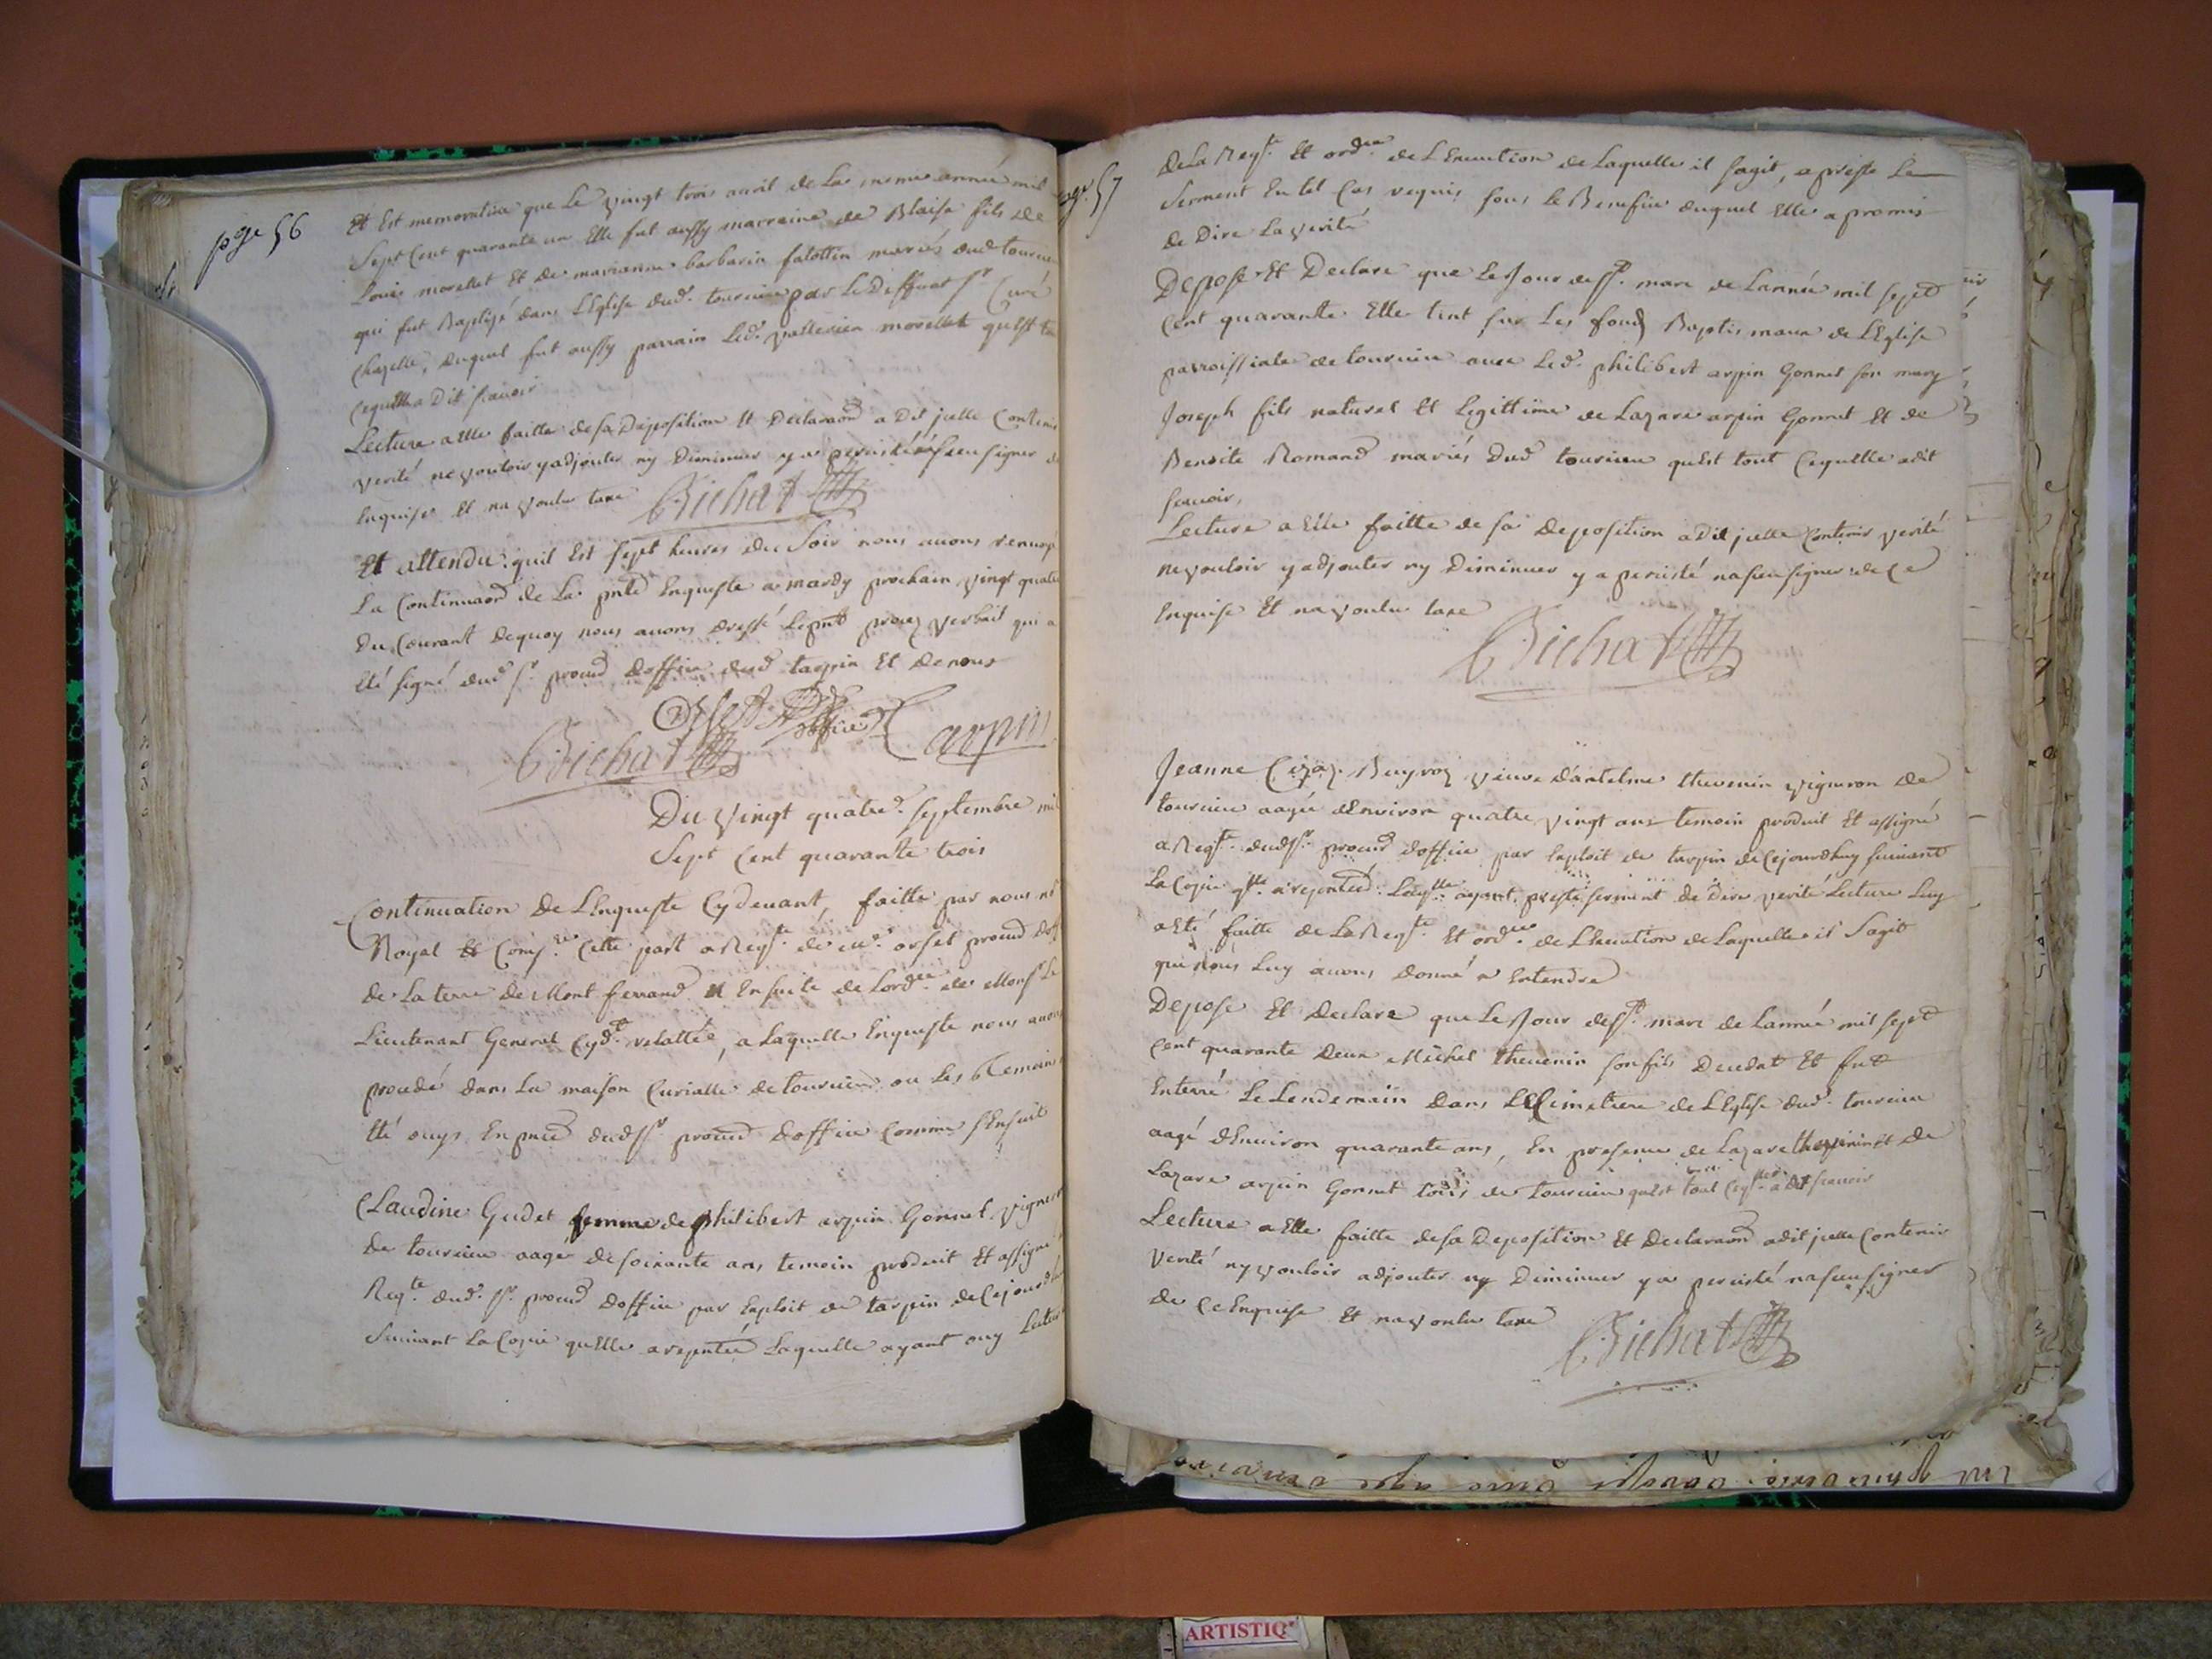 page 56
Et Est memorative que Le vingt trois avril de La meme année mil
Sept Cent quarante un Elle fut aussy marraine de Blaise fils de
Louis morellet Et de marianne barbarin falottin mariés dud tournieu
qui fut Baptisé dans L'Eglise dud. tournieu par Le Deffunt Sr. Curé
Chapelle, duquel fut aussy parrain Led. vallerien morellet qu'Est tout
Cequ'Elle a Dit scavoir
Lecture a Elle faitte de sa Deposition Et Declaraõn a Dit jcelle Contenir
verité ne vouloir y adjouter ny Diminuer y a persisté signer de
Enquise Et na voulu taxe Bichat
Et attendu quil Est sept heures du Soir nous avons renvoyé
La Continuaõn de La pnte Enqueste a mardy prochain vingt quatre
du Courant dequoy nous avons dressé Le pnt procez verbail qui a
Eté signé dud Sr. procur d'office dud tarpin Et de nous
Bichat d'office tarpin
Du vingt quatre septembre mil
Sept Cent quarante trois
Continuation de L'Enqueste Cydevant, faitte par nous
Royal Et Comis.re Cette part a Reqte. de me. orset procur d'off
de La terre de Mont ferrand Et Ensuite de L'ordce. de Monsr Le
Lieutenant General Cyd.t relattée, a Laquelle Enqueste nous avons
procedé dans La maison Curialle de tournieu ou Les temoins
Eté ouys En pnce dudSr. procur d'office Comme s'Ensuit
Claudine Gudet femme de philibert arpin Gonnet vigneron
de tournieu aagée de soixante ans temoin produit Et assigné
Reqte. dud. Sr. procur d'office par Exploit de tarpin de Cejourdhuy
Suivant La Copie qu'Elle a repntée Laquelle ayant ouy Lecture
page 57
de La Reqte. Et ordce. de L'Execution de Laquelle il sagit, a presté Le
Serment En tel Cas requis sous le Benefice duquel Elle a promis
de Dire La verité
Depose Et Declare que Le Jour de St. marc de L'année mil sept
Cent quarante Elle tint sur Les fonds Baptismaux de L'Eglise
parroissiale de tournieu avec Led. philibert arpin Gonnet son mary
Joseph fils naturel Et Legittime de Lazare arpin Gonnet Et de
Benoite Romand mariés Dud tournieu qu'Est tout Cequ'Elle a dit
scavoir,
Lecture a Elle faitte de sa Deposition a Dit jcelle Contenir verité
ne vouloir y adjouter ny Diminuer y a persisté na sceu signer de Ce
Enquise Et na voulu taxe
Bichat
Jeanne veuve d'antelme thevenin vigneron de
tournieu aagée d'Environ quatre vingt ans temoin produit Et assigné
a Reqte. dudSr. procur d'office par Exploit de tarpin de Cejourdhuy suivant
La Copie qlle a repntée. Laqlle ayant presté serment de dire verité Lecture Luy
a Eté faitte de La Reqte. Et ordce. de L'Execution de Laquelle il Sagit
que nous Luy avons donné a Entendre
Depose Et Declare que Le Jour de St. marc de L'année mil sept
Cent quarante deux Michel thevenin son fils Decedat Et fut
Enterré Le Lendemain dans Le Cimetiere de L'Eglise dud. tournieu
aagé d'Environ quarante ans, En presence de Lazare thevenin et de
Lazare arpin Gonnet tous de tournieu qu'Est tout Ceqlle a dit scavoir
Lecture a Elle faitte de sa Deposition Et Declaraõn a dit jcelle Contenir
verité ny vouloir adjouter ny Diminuer y a persisté na sceu signer
de Ce Enquise Et na voulu taxe
Bichat
ARTISTIQ